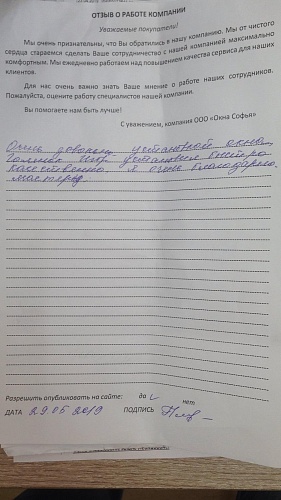 ОТЗЫВ О РАБОТЕ КОМПАНИИ
Уважаемые покупатели!
Мы очень признательны, что Вы обратились в нашу компанию. Мы от чистого
сердца стараемся сделать Ваше сотрудничество с нашей компанией максимально
комфортным. Мы ежедневно работаем над повышением качества сервиса для наших
клиентов.
Для нас очень важно знать Ваше мнение о работе наших сотрудников.
Пожалуйста, оцените работу специалистов нашей компании.
Вы помогаете нам быть лучше!
С уважением, компания ООО «Окна Софья»
Очень довольны установкой окна,
установил быстро
качественно. Я очень благодарна
мастеру
Разрешить опубликовать на сайте: да нет
ДАТА 29 05 2019 ПОДПИСЬ